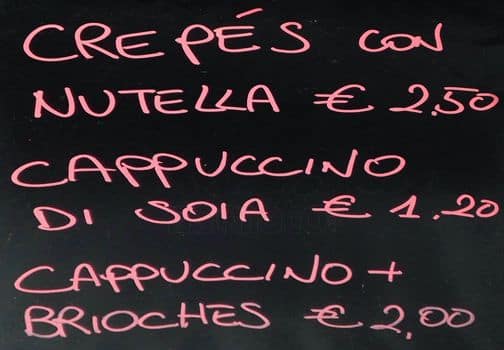 CREPÉS CON
NUTELLA € 2.50
CAPPUCCINO
DI SOIA € 1.20
CAPPUCCINO +
BRIOCHES € 2,00